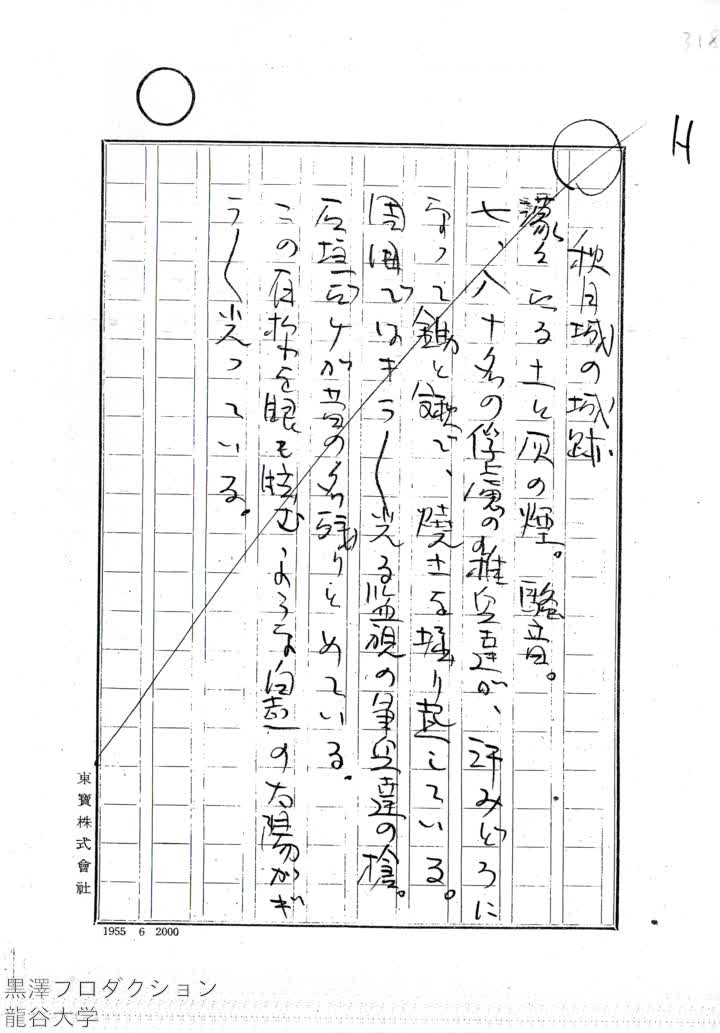 318
H
秋月城の城跡
濛々たる土と灰の煙。騒音。
七、八十名の俘虜の雑兵達が、汗みどろに
なって鋤と鍬で、焼土を掘り起している。
周囲ではキラ〱光る監視の軍兵達の槍。
石垣丈ケが昔の名残りとめている。
この有様を眼も眩むような白晝の太陽がギ
ラ〱光っている。
東寶株式會社
1955 6 2000
黒澤プロダクション
龍谷大学